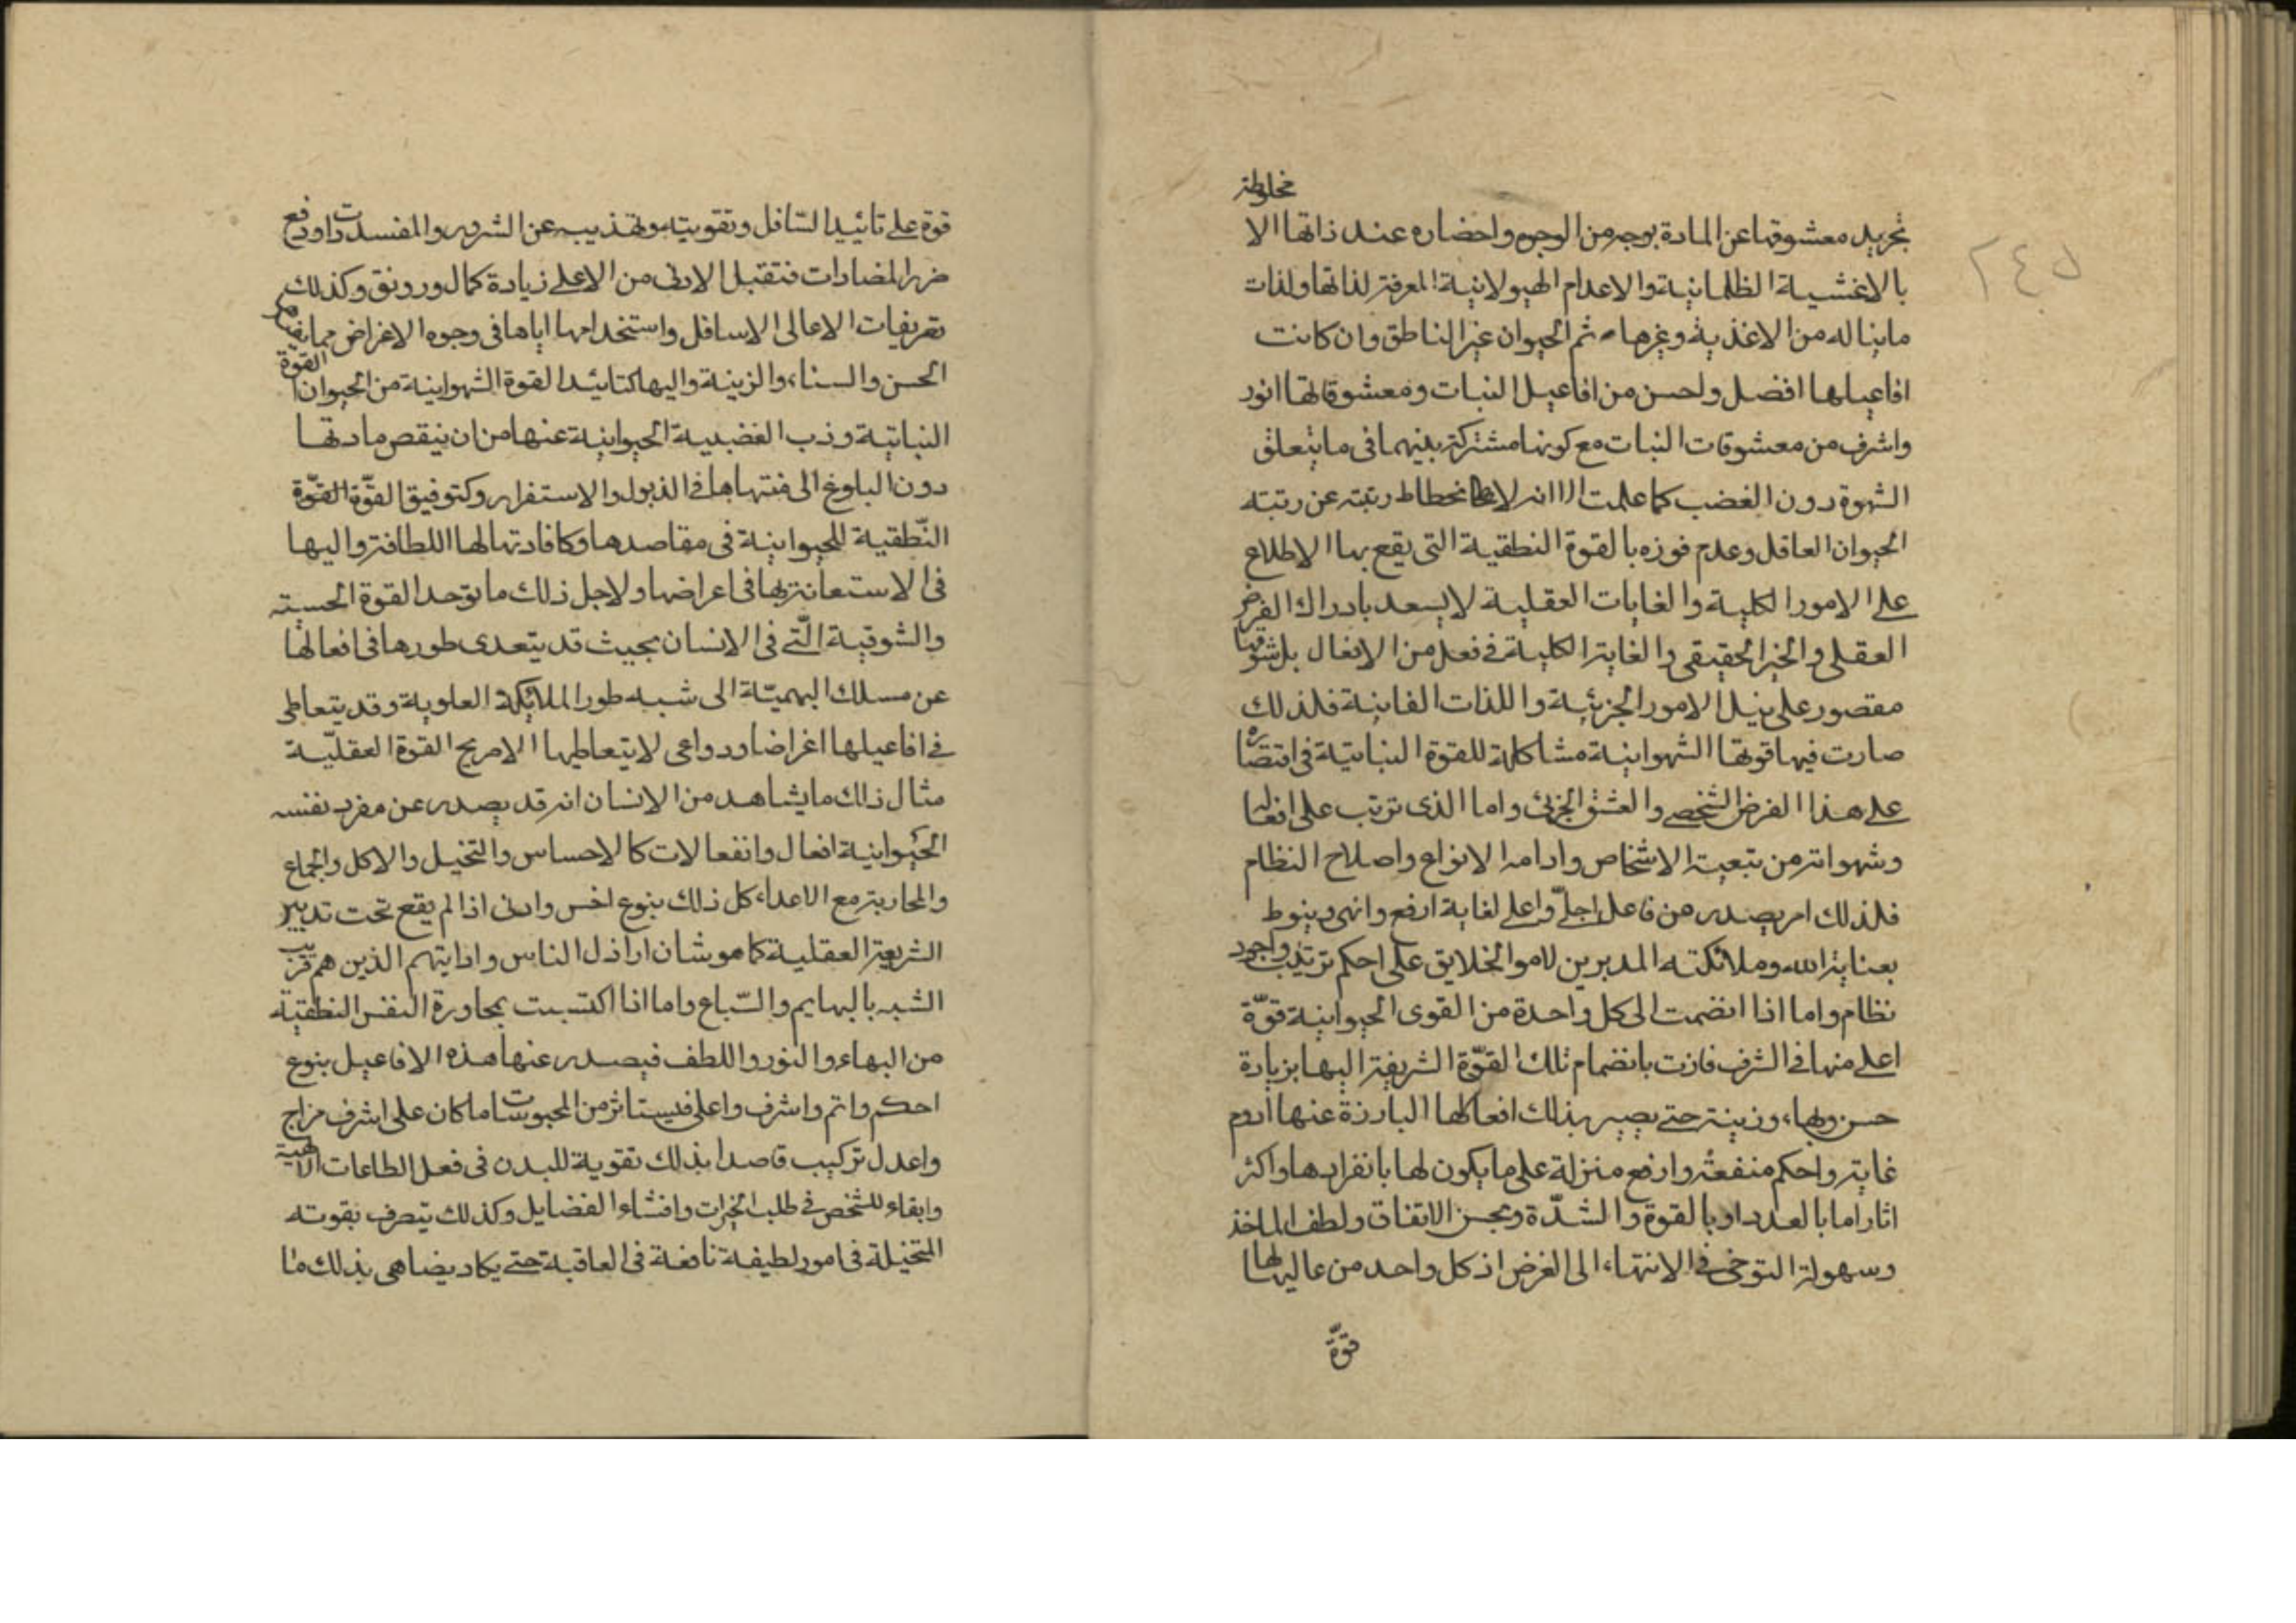 ٢٤٥
تجريد معشوقها عن المادة بوجه من الوجوه واحضاره عند ذاتها الا مخلوطة
بالاغشية الظلمانية والاعدام الهيولانية المعرفة لذاتها ولذات
ما يناله من الاغذية وغيرها ثم الحيوان غير الناطق وان كانت
افاعيلها افضل واحسن من افاعيل النبات ومعشوقاتها انور
واشرف من معشوقات النبات مع كونها مشتركة بينهما فى ما يتعلق
الشهوة دون الغضب كما علمت الا انه لانحطاط رتبته عن رتبته
الحيوان العاقل وعدم فوزه بالقوة النطقية التى يقع بها الاطلاع
على الامور الكلية والغايات العقلية لا يسعد بادراك الغرض
العقلى والخير الحقيقى والغاية الكلية فى فعل من الافعال بل شوقها
مقصور على نيل الامور الجزئية واللذات الفانية فلذلك
صارت فيها قوتها الشهوانية مشاكلة للقوة النباتية فى اقتصاره
على هذا الغرض الشخصى والعشق الجزئى واما الذى ترتب على افعالها
وشهواته من تبعية الاشخاص وادامه الانواع واصلاح النظام
فلذلك امر يصدر من فاعل اجلّ واعلى لغاية ارفع وانهى وينوط
بعناية الله وملائكته المدبرين لامو الخلايق على احكم ترتيب واجود
نظام واما اذا انضمت الى كل واحدة من القوى الحيوانية قوّة
اعلى منها فى الشرف فازت بانضمام تلك القوّة الشريفة اليها بزيادة
حسن وبهاء وزينة حتى يصير بذلك افعالها البارزة عنها ادوم
غاية واحكم منفعة وارفع منزلة على ما يكون لها بانفرادها واكثر
اثارا اما بالعدد او بالقوة والشدّة وبحسن الاتفاق ولطف الماخذ
وسهولة التوخى فى الانتهاء الى الغرض اذ كل واحد من عاليها لها
قوّة
قوة على تائيد السافل وتقويته وتهذيبه عن الشرور والمفسدات او دفع
ضرر المضادات فتقبل الادنى من الاعلى زيادة كمال ورونق وكذلك
تعريفات الاعالى الاسافل واستخدامها اياها فى وجوه الاغراض مما يفيدها
الحسن والسناء والزينة واليها كتائيد القوة الشهوانية من الحيوان القوّة
النباتية وذب الغضبية الحيوانية عنها من ان ينقص مادتها
دون البلوغ الى منتهاها فى الذبول والاستفرار وكتوفيق القوّة القوّة
النّطقية للحيوانية فى مقاصدها وكافادتها لها اللطافة واليها
فى الاستعانة بها فى اعراضها ولاجل ذلك ما توحد القوة الحسية
والشوقية الّتى فى الانسان بحيث قد يتعدى طورها فى افعالها
عن مسلك البهميّة الى شبه طور الملائكة العلوية وقد يتعاطى
فى افاعيلها اغراضا ودواعى لا يتعاطيها الا مريح القوة العقليّة
مثال ذلك ما يشاهد من الانسان انه قد يصدر عن مفرد نفسه
الحيوانية افعال وانفعالات كالاحساس والتخيل والاكل والجماع
والمحاربة مع الاعداء كل ذلك بنوع اخس وادنى اذا لم يقع تحت تدبير
الشريعة العقلية كما هو شان اراذل الناس وادانيهم الذين هم قريب
الشبه بالبهايم والسّباع واما اذا اكتسبت بمجاورة النفس النطقية
من البهاء والنور واللطف فيصدر عنها هذه الافاعيل بنوع
احكم واتم واشرف واعلى فيستاثر من المحبوسات ما كان على اشرف مزاج
واعدل تركيب قاصدا بذلك تقوية للبدن فى فعل الطاعات الالهية
وابقاء للشخص فى طلب الخيرات وافشاء الفضايل وكذلك يتصرف بقوته
المتخيلة فى امور لطيفة نافعة فى العاقبة حتى يكاد يضاهى بذلك ما